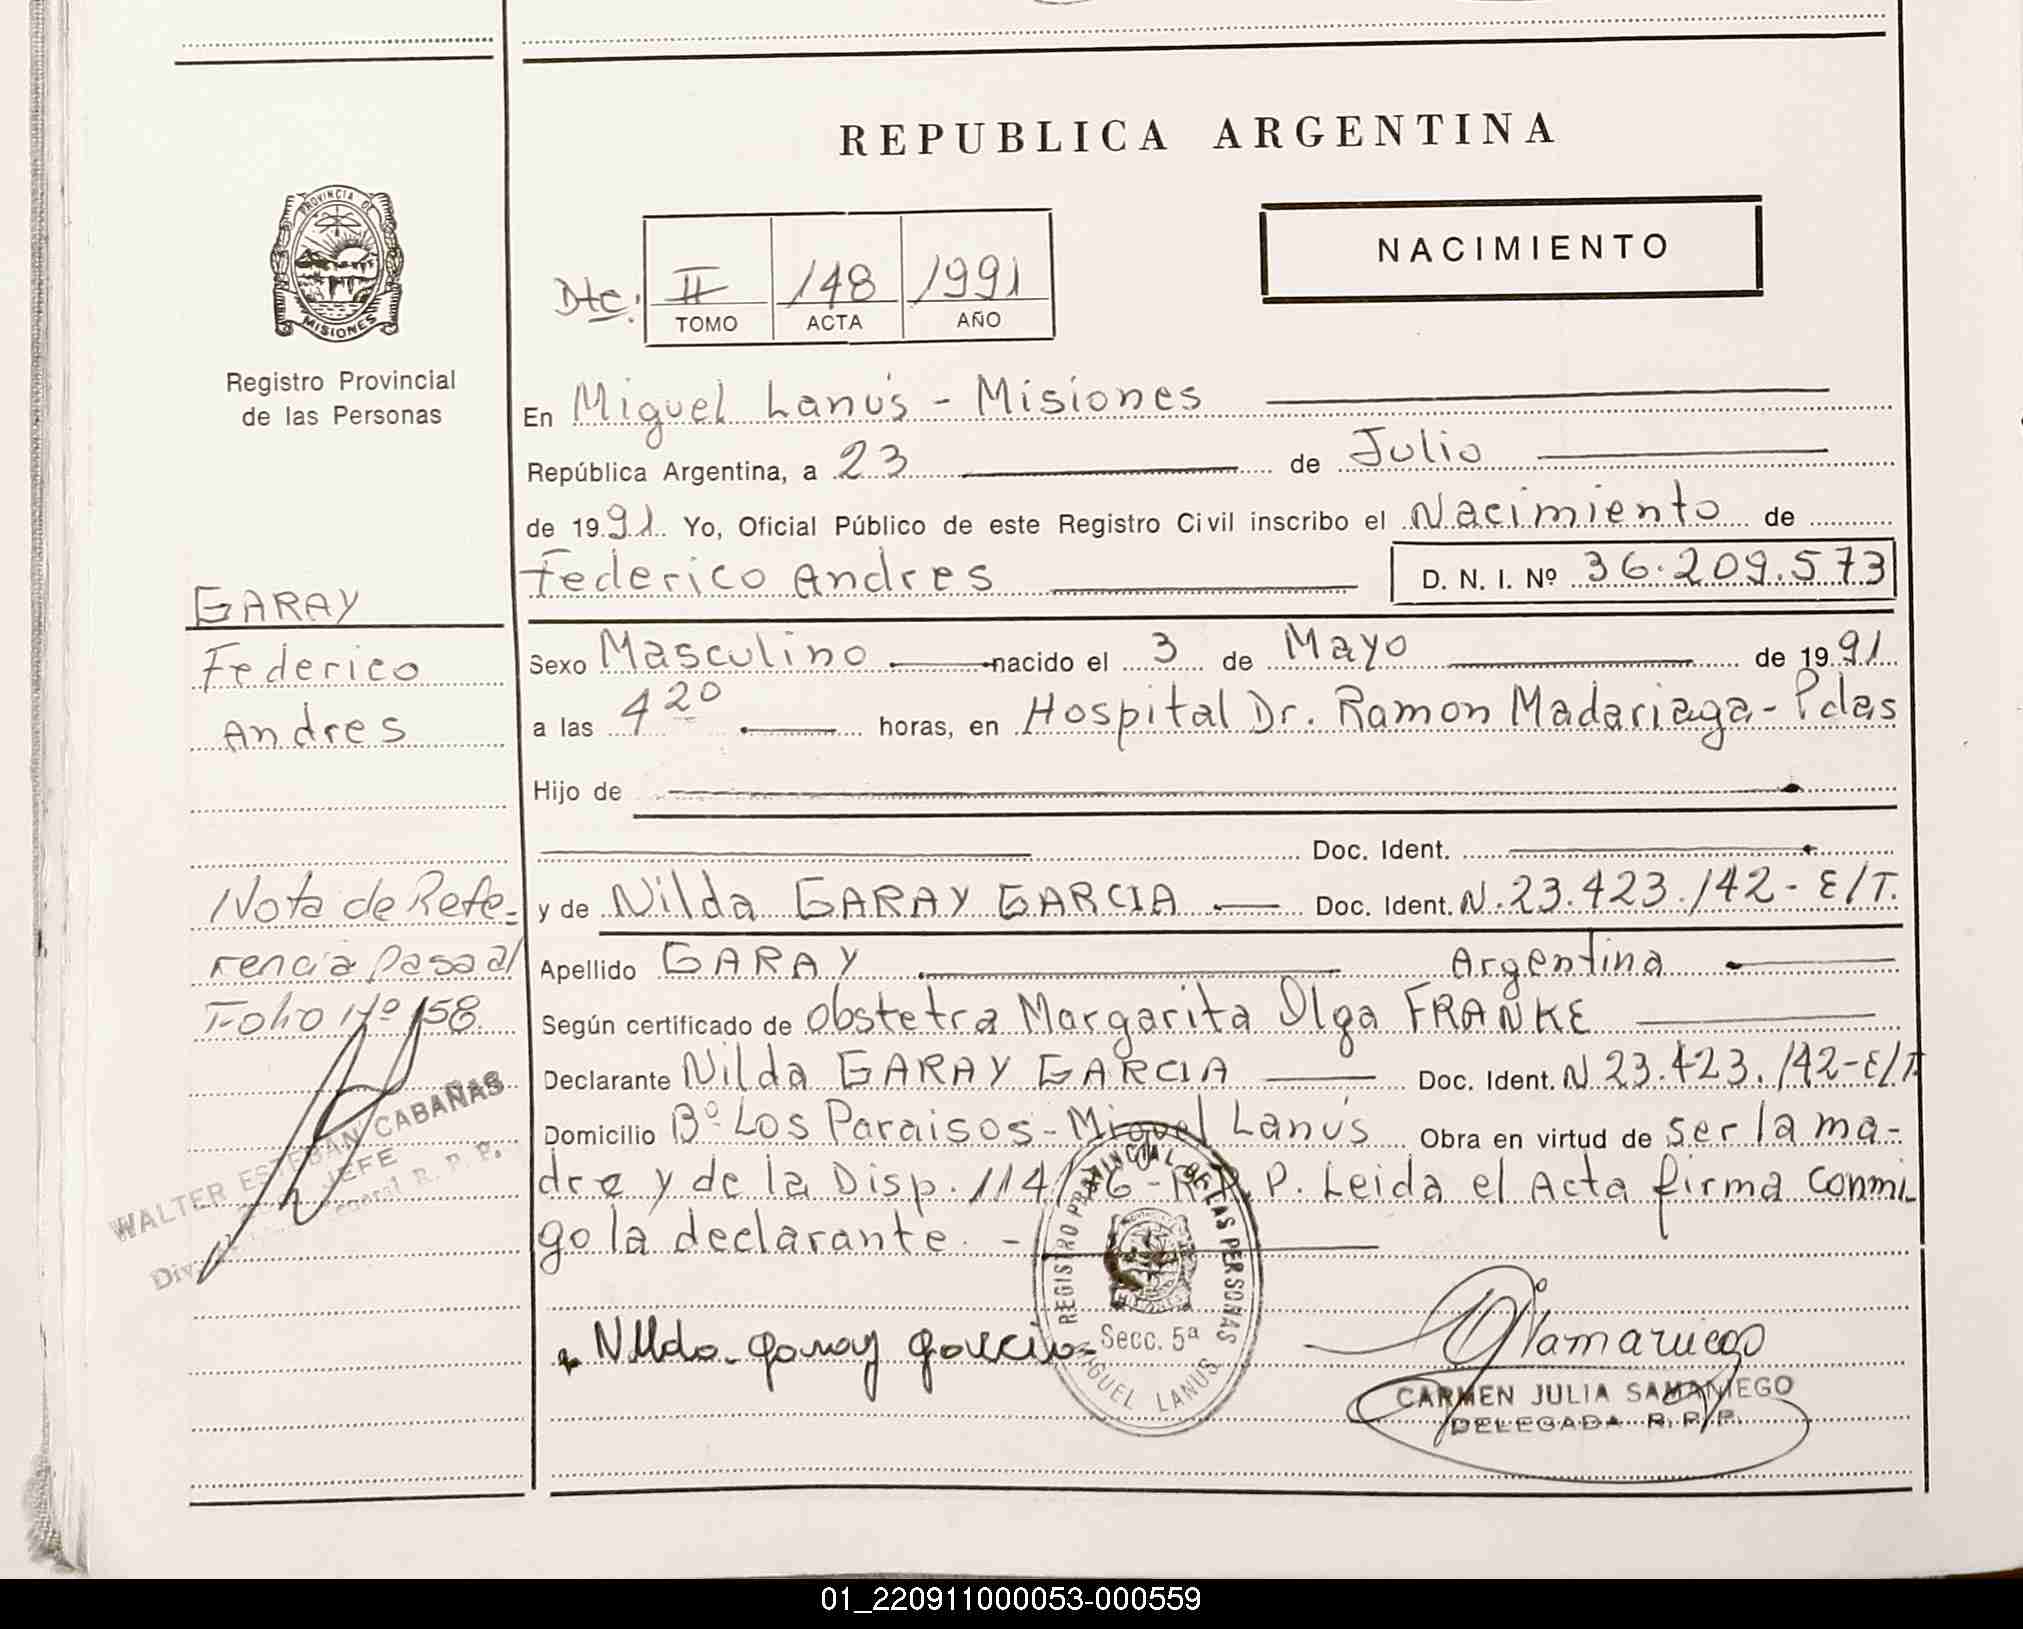 REPUBLICA ARGENTINA
NACIMIENTO
PROVINCIA DE
MISIONES
Registro Provincial
de las Personas
Dtc: II 148 1991
TOMO ACTA AÑO
En Miguel Lanús - Misiones
República Argentina, a 23 de Julio
de 1991 Yo, Oficial Público de este Registro Civil inscribo el Nacimiento de
Federico Andres D. N. I. Nº 36.209.573
Sexo Masculino nacido el 3 de Mayo de 1991
a las 4 20 horas, en Hospital Dr. Ramon Madariaga - Pdas
Hijo de
Doc. Ident.
y de Nilda GARAY GARCIA Doc. Ident. N. 23.423.142 - E/T.
Apellido GARAY Argentina
Según certificado de obstetra Margarita Olga FRANKE
Declarante Nilda GARAY GARCIA Doc. Ident. N 23.423.142-E/T
Domicilio Bº Los Paraisos - Miguel Lanús Obra en virtud de ser la ma-
dre y de la Disp. 114/76 - R.P.P. Leida el Acta firma conmi-
go la declarante. -
GARAY
Federico
Andres
Nota de Refe-
rencia pasa al
Folio Nº 158
WALTER ESTEBAN CABAÑAS
JEFE
General R. P. P.
Nilda Garay Garcia
REGISTRO PROVINCIAL DE LAS PERSONAS
Secc. 5ª
MIGUEL LANUS
Samaniego
CARMEN JULIA SAMANIEGO
DELEGADA R. P. P.
01_220911000053-000559